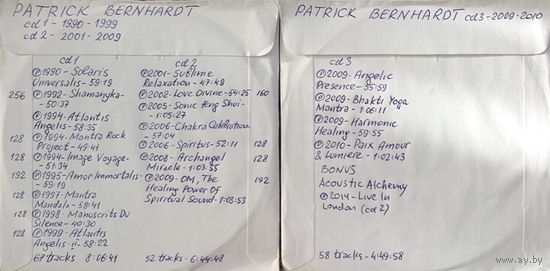 PATRICK BERNHARDT
cd 1 - 1990 - 1999
cd 2 - 2001 - 2009
cd 1
℗1990 - Solaris
Universalis - 59:19
256 ℗1992 - Shamanyka -
- 50:37
℗1994 - Atlantis
Angelis - 58:35
128 ℗1994 - Mantra Rock
Project - 49:41
128 ℗1994 - Image Voyage -
- 51:34
192 ℗1995 - Amor Immortalis -
- 59:19
128 ℗1997 - Mantra
Mandala - 58:41
128 ℗1998 - Manuscrits Du
Silence - 40:30
128 ℗1999 - Atlantis
Angelis II - 58:22
67 tracks 8:06:41
cd 2
℗2001 - Sublime
Relaxation - 47:49
℗2002 - Love Divine - 54:25 160
℗2005 - Sonic Feng Shui -
- 1:05:27
℗2006 - Chakra Celebration -
- 57:04
℗2006 - Spiritus - 52:11 128
℗2008 - Archangel 128
Miracle - 1:03:35
℗2009 - OM, The 192
Healing Power Of
Spiritual Sound - 1:03:53
52 tracks - 6:44:48
PATRICK BERNHARDT cd 3 - 2009 - 2010
cd 3
℗2009 - Angelic
Presence - 35:59
℗2009 - Bhakti Yoga
Mantra - 1:06:11
℗2009 - Harmonic
Healing - 59:55
℗2010 - Paix Amour
& Lumiere - 1:02:43
BONUS
Acoustic Alchemy
℗2014 - Live In
London (cd 2)
58 tracks - 4:49:58
© www.ay.by